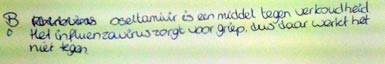 B oseltamivir is een middel tegen verkoudheid
Het influenzavirus zorgt voor griep, dus daar werkt het
niet tegen